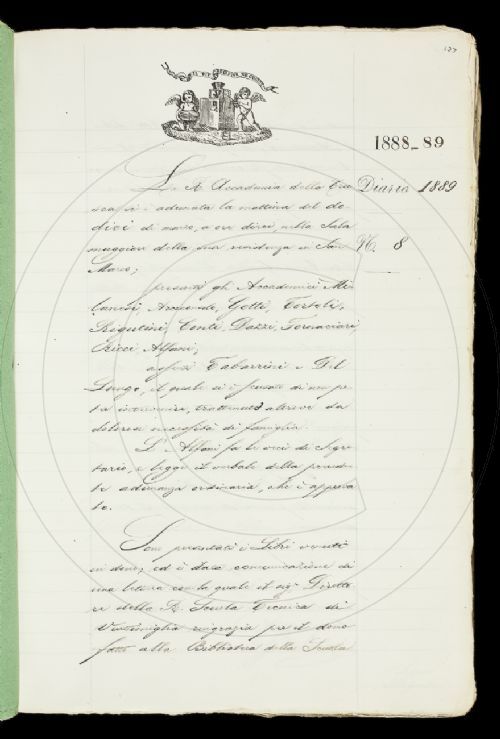 IL PIÙ BEL FIOR NE COGLIE
177
1888_89
La R. Accademia della Cru
Diario 1889
sca si è adunata la mattina del do
dici di marzo, a ore dieci, nella Sala
N. 8
maggiore della sua residenza in San
Marco;
presenti gli Accademici Mi
lanesi, Gotti, Tortoli,
Rigutini, Conti, Dazzi, Fornaciari,
Ricci, Alfani;
assenti Tabarrini e Del
Lungo, il quale si è scusato di non po
ter intervenire, trattenuto altrove da
dolorosa necessità di famiglia.
L'Alfani fa le veci di Segre
tario, e legge il verbale della preceden
te adunanza ordinaria, che è approva
to.
Sono presentati i Libri venuti
in dono, ed è data comunicazione di
una lettera con la quale il sig. Diretto
re della R. Scuola Tecnica di
Ventimiglia ringrazia per il dono
fatto alla Biblioteca della Scuola